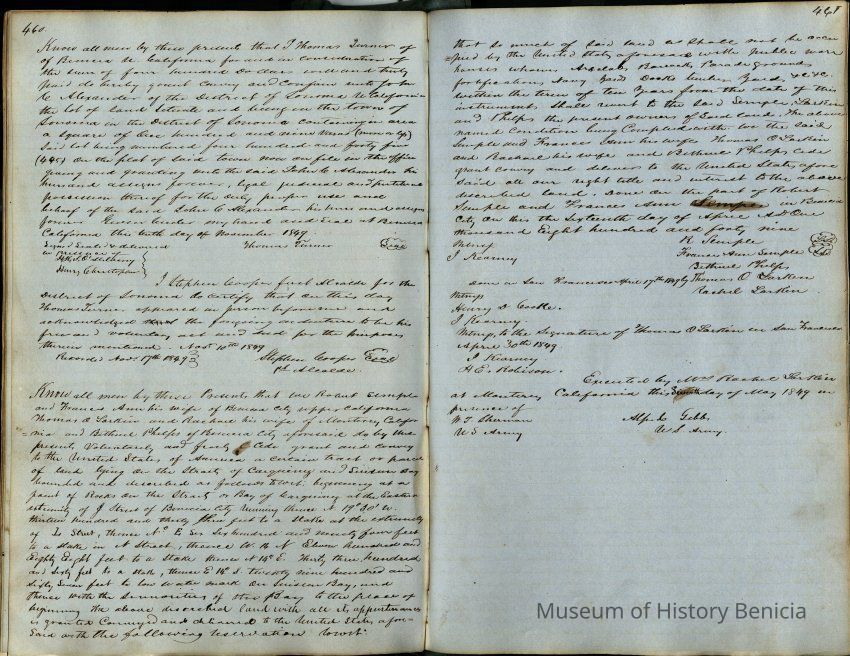 460.
Know all men by these presents that I Thomas Turner of
of Benicia U. California for and in consideration of
the sum of four hundred Dollars and truly
paid do hereby grant convey and confirm unto John
C Alexander of the District of Sonoma U California
the lot of land situate and being in the town of
Sonoma in the District of Sonoma containing in area
a square of One hundred and nine varas
Said lot being numbered four hundred and forty five
(445) On the plot of said town now on file in the office
giving and granting unto the said John C Alexander his
heirs and assigns forever, legal judicial and
possession thereof for the only proper use and
behalf of the said John C Alexander his heirs and assigns
forever. Given under my hand and seal at Benicia
California this tenth day of November 1849.
Signed Sealed & delivered Thomas Turner Seal
in presence of
Henry Christopher
I Stephen Cooper first Alcalde for the
District of Sonoma do certify that on this day
Thomas Turner appeared in person before me and
acknowledged the foregoing indenture to be his
free and voluntary act and deed for the purposes
therein mentioned Nov 10th 1849
Recorded Nov. 17th 1849 Stephen Cooper Seal
1st Alcalde
Know all men by these Presents that we Robert Semple
and Frances Ann his wife of Benicia City upper California
Thomas O Larkin and Rachael his wife of Monterey Califor
nia and Bethuel Phelps of Benicia City aforesaid do by these
presents, Voluntarily and freely Cede grant and convey
to the United States of America a certain tract or parcel
of land lying On the Straits of Carquinez and Suisun Bay
bounded and described as follows to wit. beginning at a
point of Rocks on the Strait or Bay of Carquinez at the Eastern
extremity of J Street of Benicia City running thence N 19°30' W.
thirteen hundred and thirty three feet to a stake at the extremity
of Street, thence N° E Six hundred and ninety four feet
to a stake in N Street, thence W. N Eleven hundred and
Eighty Eight feet to a stake thence N E thirty three hundred
and sixty feet to a stake, thence E twenty nine hundred and
Sixty Seven feet to low water mark On Suisun Bay, and
thence with the sinuosities of the Bay to the place of
beginning the above described land with all its appurtenances
is granted Conveyed and delivered to the United States afore
Said with the following reservation towit.
461
that so much of said land as Shall not be occu
=pied by the United States aforesaid with public ware
houses wharves, Arsenals, Barracks, Parade grounds
fortifications, Navy Yards Docks Yards, &c &c.
within the term of ten Years from the date of this
instrument Shall revert to the said Semple, Larkin
and Phelps the present owners of Said land. The above
named Condition being Complied with, we the Said
Semple and Frances Ann his wife Thomas O Larkin
and Rachael his wife and Bethuel Phelps Cede
grant convey and deliver to the United States, afore
Said all our right title and interest to the above
described land, Done on the part of Robert
Semple and Frances Ann Semple in Benicia
City On this the Sixteenth day of April AD One
thousand Eight hundred and forty nine
Witness R. Semple Seal
J Kearney Frances Ann Semple Seal
Bethuel Phelps
done in San Francisco April 17th 1849 by Thomas O Larkin
Rachel Larkin
Witness
Henry D Cooke.
J Kearney
Witness, to the Signature of Thomas O Larkin in San Francisco
April 30th 1849
J Kearney
H. E. Robinson.
Executed by Mrs Rachel Larkin
at Monterey California this day of May 1849 in
presence of
W T Sherman Alf. Gibbs.
U S Army U S Army.
Museum of History Benicia